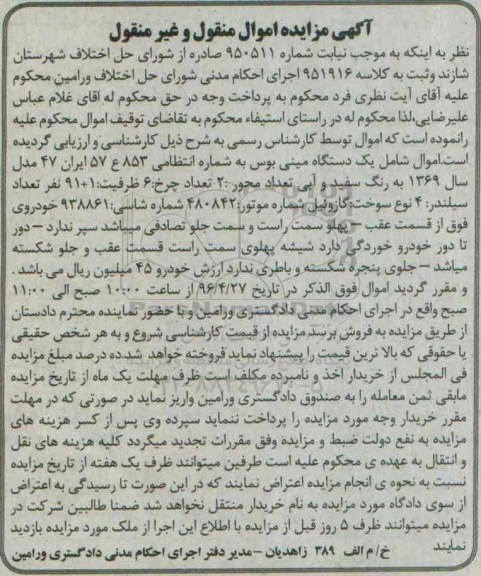 آگهی مزایده اموال منقول و غیر منقول
نظر به اینکه به موجب نیابت شماره ۹۵۰۵۱۱ صادره از شورای حل اختلاف شهرستان
شازند وثبت به کلاسه ۹۵۱۹۱۶ اجرای احکام مدنی شورای حل اختلاف ورامین محکوم
علیه آقای آیت نظری فرد محکوم به پرداخت وجه در حق محکوم له اقای غلام عباس
علیرضایی،لذا محکوم له در راستای استیفاء محکوم به تقاضای توقیف اموال محکوم علیه
رانموده است که اموال توسط کارشناس رسمی به شرح ذیل کارشناسی و ارزیابی گردیده
است.اموال شامل یک دستگاه مینی بوس به شماره انتظامی ۸۵۳ ع ۵۷ ایران ۴۷ مدل
سال ۱۳۶۹ به رنگ سفید و آبی تعداد محور :۲ تعداد چرخ:۶ ظرفیت:۱+۹۱ نفر تعداد
سیلندر: ۴ نوع سوخت:گازوئیل شماره موتور:۴۸۰۸۴۲ شماره شاسی:۹۳۸۸۶۱ خودروی
فوق از قسمت عقب – پهلو سمت راست و سمت جلو تصادفی میباشد سپر ندارد – دور
تا دور خودرو خوردگی دارد شیشه پهلوی سمت راست قسمت عقب و جلو شکسته
میاشد – جلوی پنجره شکسته و باطری ندارد ارزش خودرو ۴۵ میلیون ریال می باشد .
و مقرر گردید اموال فوق الذکر در تاریخ ۹۶/۴/۲۷ از ساعت ۱۰:۰۰ صبح الی ۱۱:۰۰
صبح واقع در اجرای احکام مدنی دادگستری ورامین و با حضور نماینده محترم دادستان
از طریق مزایده به فروش برسد.مزایده از قیمت کارشناسی شروع و به هر شخص حقیقی
یا حقوقی که بالا ترین قیمت را پیشنهاد نماید فروخته خواهد شد.ده درصد مبلغ مزایده
فی المجلس از خریدار اخذ و نامبرده مکلف است ظرف مهلت یک ماه از تاریخ مزایده
مابقی ثمن معامله را به صندوق دادگستری ورامین واریز نماید در صورتی که در مهلت
مقرر خریدار وجه مورد مزایده را پرداخت ننماید سپرده وی پس از کسر هزینه های
مزایده به نفع دولت ضبط و مزایده وفق مقررات تجدید میگردد کلیه هزینه های نقل
و انتقال به عهده ی محکوم علیه است طرفین میتوانند ظرف یک هفته از تاریخ مزایده
نسبت به نحوه ی انجام مزایده اعتراض نمایند که در این صورت تا رسیدگی به اعتراض
از سوی دادگاه مورد مزایده به نام خریدار منتقل نخواهد شد ضمنا طالبین شرکت در
مزایده میتوانند ظرف ۵ روز قبل از مزایده با اطلاع این اجرا از ملک مورد مزایده بازدید
نمایند
خ/ م الف ۳۸۹ زاهدیان – مدیر دفتر اجرای احکام مدنی دادگستری ورامین